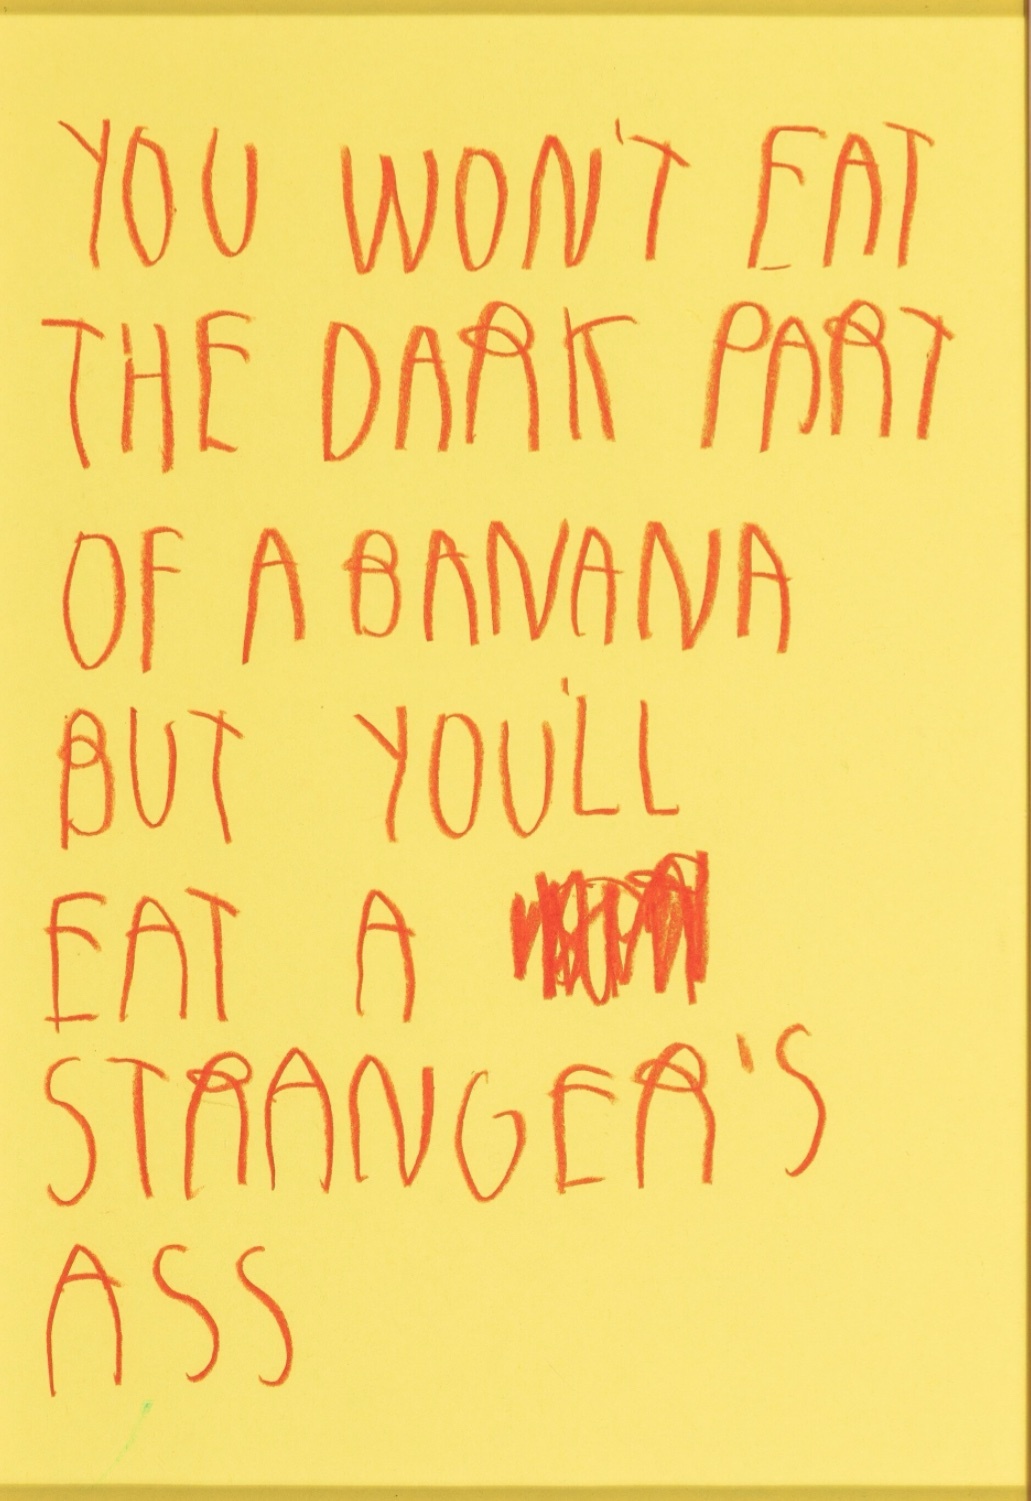 YOU WON'T EAT
THE DARK PART
OF A BANANA
BUT YOU'LL
EAT A
STRANGER'S
ASS